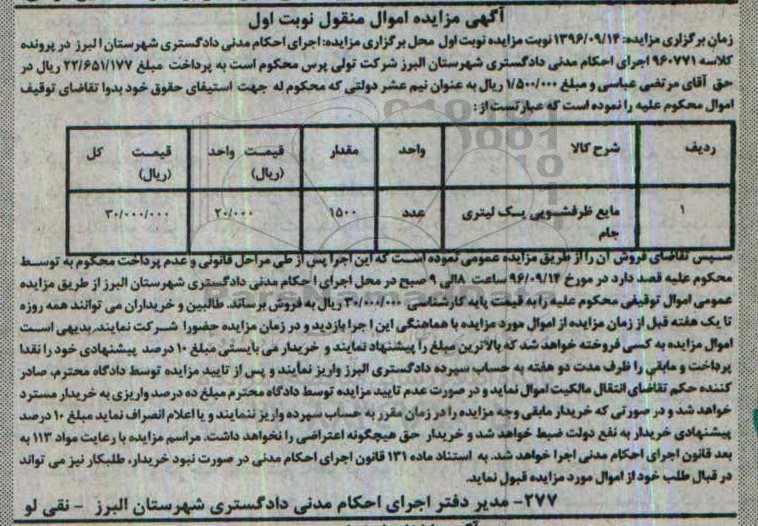 آگهی مزایده اموال منقول نوبت اول
زمان برگزاری مزایده: ۱۳۹۶/۰۹/۱۴ نوبت مزایده نوبت اول محل برگزاری مزایده: اجرای احکام مدنی دادگستری شهرستان البرز در پرونده
کلاسه ۹۶۰۷۷۱ اجرای احکام مدنی دادگستری شهرستان البرز شرکت تولی پرس محکوم است به پرداخت مبلغ ۲۲/۶۵۱/۱۷۷ ریال در
حق آقای مرتضی عباسی و مبلغ ۱/۵۰۰/۰۰۰ ریال به عنوان نیم عشر دولتی که محکوم له جهت استیفای حقوق خود بدوا تقاضای توقیف
اموال محکوم علیه را نموده است که عبارتست از:
ردیف شرح کالا واحد مقدار قیمت واحد (ریال) قیمت کل (ریال)
۱ مایع ظرفشویی یک لیتری جام عدد ۱۵۰۰ ۲۰/۰۰۰ ۳۰/۰۰۰/۰۰۰
سپس تقاضای فروش آن را از طریق مزایده عمومی نموده است که این اجرا پس از طی مراحل قانونی و عدم پرداخت محکوم به توسط
محکوم علیه قصد دارد در مورخ ۹۶/۰۹/۱۴ ساعت ۸ الی ۹ صبح در محل اجرای احکام مدنی دادگستری شهرستان البرز از طریق مزایده
عمومی اموال توقیفی محکوم علیه را به قیمت پایه کارشناسی ۳۰/۰۰۰/۰۰۰ ریال به فروش برساند. طالبین و خریداران می توانند همه روزه
تا یک هفته قبل از زمان مزایده از اموال مورد مزایده با هماهنگی این اجرا بازدید و در زمان مزایده حضورا شرکت نمایند. بدیهی است
اموال مزایده به کسی فروخته خواهد شد که بالاترین مبلغ را پیشنهاد نمایند و خریدار می بایستی مبلغ ۱۰ درصد پیشنهادی خود را نقدا
پرداخت و مابقی را ظرف مدت دو هفته به حساب سپرده دادگستری البرز واریز نمایند و پس از تایید مزایده توسط دادگاه محترم، صادر
کننده حکم تقاضای انتقال مالکیت اموال نماید و در صورت عدم تایید مزایده توسط دادگاه محترم مبلغ ده درصد واریزی به خریدار مسترد
خواهد شد و در صورتی که خریدار مابقی وجه مزایده را در زمان مقرر به حساب سپرده واریز ننمایند و یا اعلام انصراف نماید مبلغ ۱۰ درصد
پیشنهادی خریدار به نفع دولت ضبط خواهد شد و خریدار حق هیچگونه اعتراضی را نخواهد داشت. مراسم مزایده با رعایت مواد ۱۱۳ به
بعد قانون اجرای احکام مدنی اجرا خواهد شد. به استناد ماده ۱۳۱ قانون اجرای احکام مدنی در صورت نبود خریدار، طلبکار نیز می تواند
در قبال طلب خود از اموال مورد مزایده قبول نماید.
۲۷۷- مدیر دفتر اجرای احکام مدنی دادگستری شهرستان البرز - نقی لو